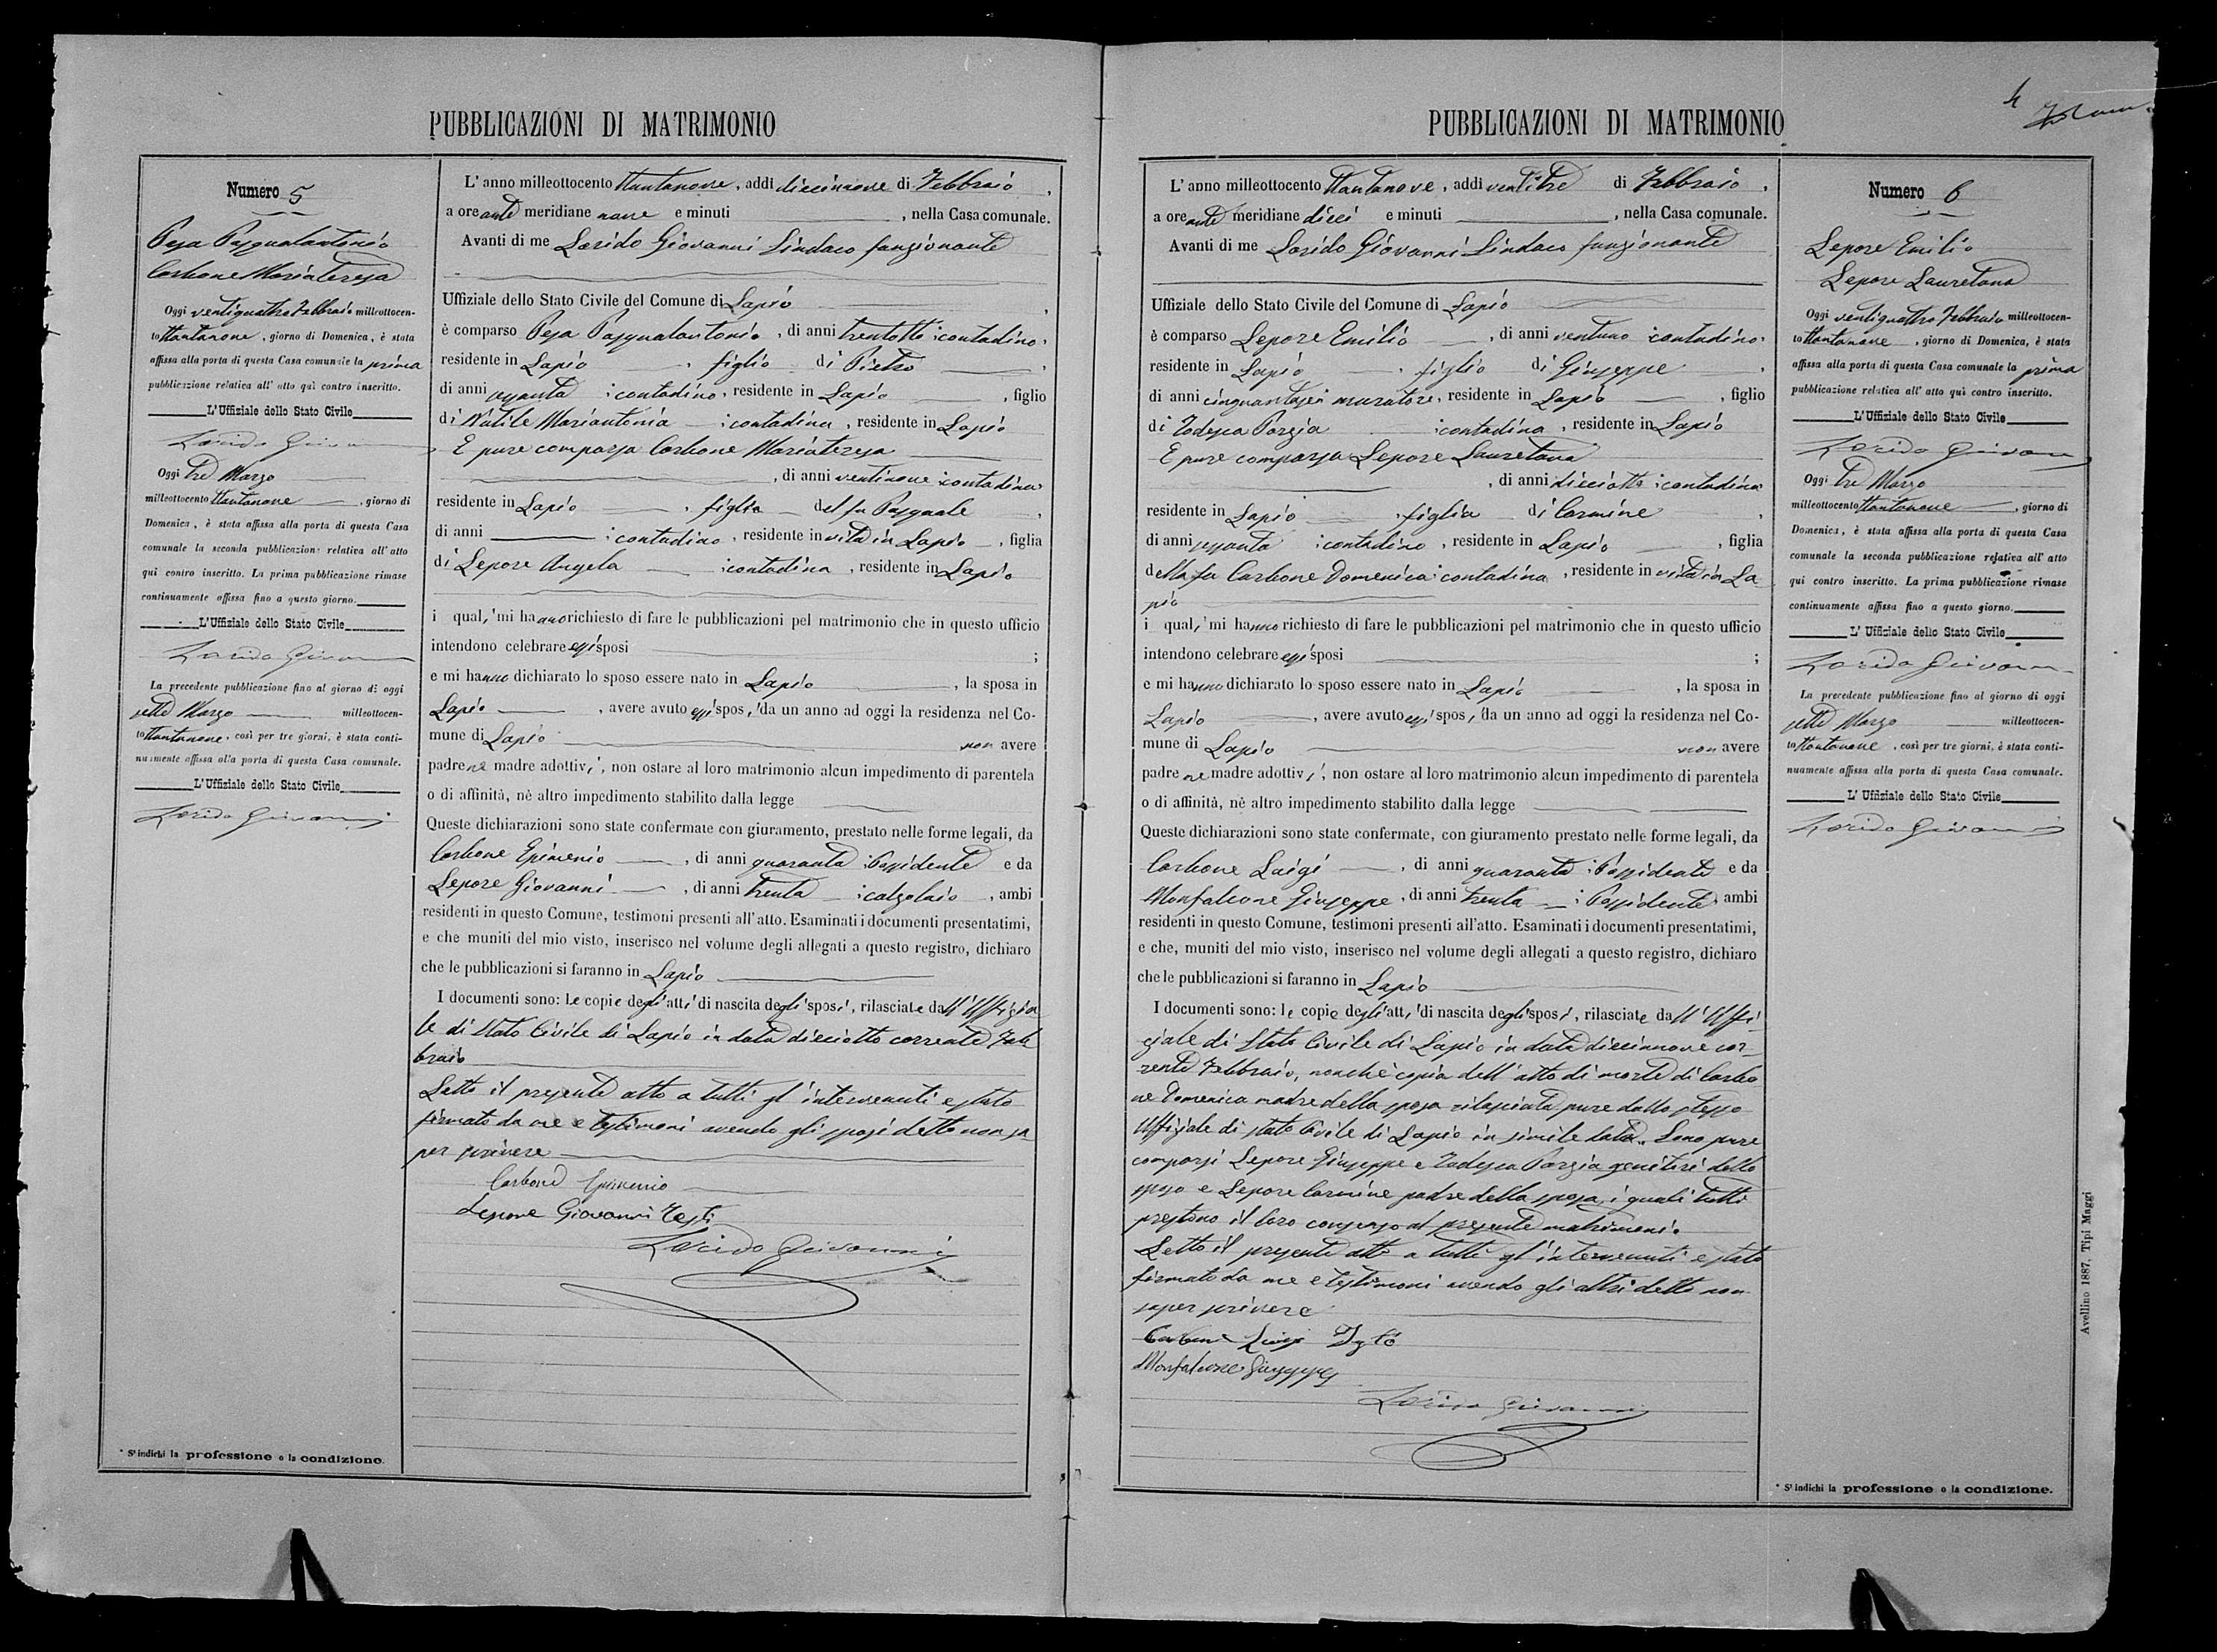 PUBBLICAZIONI DI MATRIMONIO
Numero 5
Pesa Pasqualantonio
Carbone Mariateresa
Oggi ventiquattro Febbraio milleottocen-
to ttantanove, giorno di Domenica, è stata
affissa alla porta di questa Casa comunale la prima
pubblicazione relativa all' atto quì contro inscritto.
L'Uffiziale dello Stato Civile
Lorido Giovanni
Oggi tre Marzo
milleottocento ttantanove, giorno di
Domenica, è stata affissa alla porta di questa Casa
comunale la seconda pubblicazione relativa all' atto
qui contro inscritto. La prima pubblicazione rimase
continuamente affissa fino a questo giorno.
L'Uffiziale dello Stato Civile
Lorido Giovanni
La precedente pubblicazione fino al giorno di oggi
sette Marzo milleottocen-
to ttantanove, così per tre giorni, è stata conti-
nuamente affissa alla porta di questa Casa comunale.
L'Uffiziale dello Stato Civile
Lorido Giovanni
* S'indichi la professione o la condizione.
L' anno milleottocento ttantanove, addi diecinnove di Febbraio,
a ore ante meridiane nove e minuti , nella Casa comunale.
Avanti di me Lorido Giovanni Sindaco funzionante
Uffiziale dello Stato Civile del Comune di Lapio
è comparso Pesa Pasqualantonio, di anni trentotto contadino,
residente in Lapio, figlio di Pietro,
di anni sessanta contadino, residente in Lapio, figlio
di Nutile Mariantonia contadina, residente in Lapio
E pure comparsa Carbone Mariateresa
, di anni ventinove contadina
residente in Lapio, figlia del fu Pasquale,
di anni contadino, residente in vita in Lapio, figlia
di Lepore Angela contadina, residente in Lapio
i qual,i mi hanno richiesto di fare le pubblicazioni pel matrimonio che in questo ufficio
intendono celebrare essi sposi ;
e mi hanno dichiarato lo sposo essere nato in Lapio, la sposa in
Lapio, avere avuto essi sposi, da un anno ad oggi la residenza nel Co-
mune di Lapio non avere
padre nè madre adottivi, non ostare al loro matrimonio alcun impedimento di parentela
o di affinità, nè altro impedimento stabilito dalla legge
Queste dichiarazioni sono state confermate con giuramento, prestato nelle forme legali, da
Carbone Epimenio, di anni quaranta Possidente e da
Lepore Giovanni, di anni trenta calzolaio, ambi
residenti in questo Comune, testimoni presenti all'atto. Esaminati i documenti presentatimi,
e che muniti del mio visto, inserisco nel volume degli allegati a questo registro, dichiaro
che le pubblicazioni si faranno in Lapio
I documenti sono: Le copie degli atti di nascita degli sposi, rilasciate dall'Uffizia
le di Stato Civile di Lapio in data dieciotto corrente Feb
braio
Letto il presente atto a tutti gl' intervenuti e stato
firmato da me e testimoni avendo gli sposi detto non sa
per scrivere
Carbone Epimenio
Lepore Giovanni Testi
Lorido Giovanni
PUBBLICAZIONI DI MATRIMONIO
4
L' anno milleottocento ttantanove, addi ventitre di Febbraio,
a ore ante meridiane dieci e minuti , nella Casa comunale.
Avanti di me Lorido Giovanni Sindaco funzionante
Uffiziale dello Stato Civile del Comune di Lapio
è comparso Lepore Emilio, di anni ventuno contadino,
residente in Lapio, figlio di Giuseppe,
di anni cinquantasei muratore, residente in Lapio, figlio
di Todesca Porzia contadina, residente in Lapio
E pure comparsa Lepore Lauretana
, di anni dieciotto contadina
residente in Lapio, figlia di Carmine,
di anni sessanta contadino, residente in Lapio, figlia
della fu Carbone Domenica contadina, residente in vita in La
pio
i qual,i mi hanno richiesto di fare le pubblicazioni pel matrimonio che in questo ufficio
intendono celebrare essi sposi ;
e mi hanno dichiarato lo sposo essere nato in Lapio, la sposa in
Lapio, avere avuto essi sposi, da un anno ad oggi la residenza nel Co-
mune di Lapio non avere
padre nè madre adottivi, non ostare al loro matrimonio alcun impedimento di parentela
o di affinità, nè altro impedimento stabilito dalla legge
Queste dichiarazioni sono state confermate, con giuramento prestato nelle forme legali, da
Carbone Luigi, di anni quaranta Possidente e da
Monfalcone Giuseppe, di anni trenta Possidente, ambi
residenti in questo Comune, testimoni presenti all'atto. Esaminati i documenti presentatimi,
e che, muniti del mio visto, inserisco nel volume degli allegati a questo registro, dichiaro
che le pubblicazioni si faranno in Lapio
I documenti sono: le copie degli atti di nascita degli sposi, rilasciate dall'Uffi-
ziale di Stato Civile di Lapio in data diecinnove cor-
rente Febbraio, nonchè copia dell'atto di morte di Carbo
ne Domenica madre della sposa rilasciata pure dallo stesso
Uffiziale di stato Civile di Lapio in simile data. Sono pure
comparsi Lepore Giuseppe e Todesca Porzia genitori dello
sposo e Lepore Carmine padre della sposa, i quali tutti
prestono il loro consenso al presente matrimonio.
Letto il presente atto a tutti gl'intervenuti e stato
firmato da me e testimoni avendo gli altri detto non
saper scrivere
Carbone Luigi Testo
Monfalcone Giuseppe
Lorido Giovanni
Numero 6
Lepore Emilio
Lepore Lauretana
Oggi ventiquattro Febbraio milleottocen-
to ttantanove, giorno di Domenica, è stata
affissa alla porta di questa Casa comunale la prima
pubblicazione relativa all' atto quì contro inscritto.
L'Uffiziale dello Stato Civile
Lorido Giovanni
Oggi tre Marzo
milleottocento ttantanove, giorno di
Domenica, è stata affissa alla porta di questa Casa
comunale la seconda pubblicazione relativa all' atto
qui contro inscritto. La prima pubblicazione rimase
continuamente affissa fino a questo giorno.
L' Uffiziale dello Stato Civile
Lorido Giovanni
La precedente pubblicazione fino al giorno di oggi
sette Marzo milleottocen-
to ttantanove, così per tre giorni, è stata conti-
nuamente affissa alla porta di questa Casa comunale.
L' Uffiziale dello Stato Civile
Lorido Giovanni
* S'indichi la professione o la condizione.
Avellino 1887, Tipi Maggi